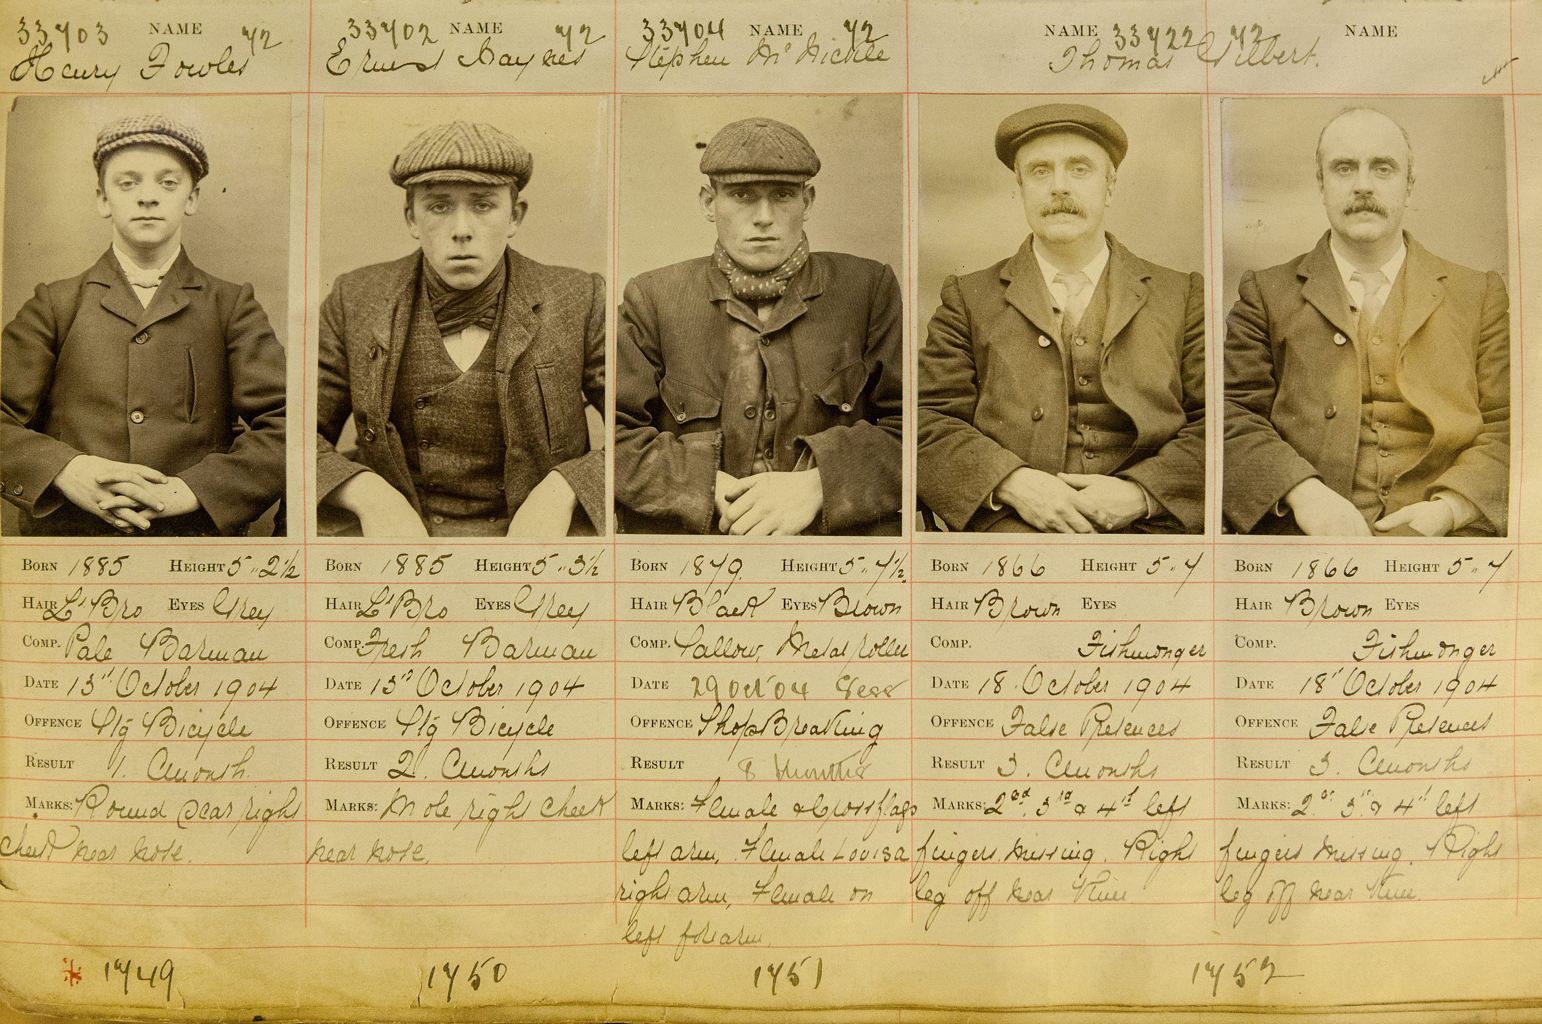 33703 NAME 72
Henry Fowles
33702 NAME 72
Ernest Haynes
33704 NAME 72
Stephen McNickle
NAME 33722 72 NAME
Thomas Gilbert.
BORN 1885 HEIGHT 5„ 2½
HAIR Lt Bro EYES Grey
COMP. Pale Barman
DATE 13th October 1904
OFFENCE Stg Bicycle
RESULT 1. Cmonth.
MARKS: Round Scar right
cheek near nose.
* 1749
BORN 1885 HEIGHT 5„ 3½
HAIR Lt Bro EYES Grey
COMP. Fresh Barman
DATE 13th October 1904
OFFENCE Stg Bicycle
RESULT 2. Cmonths
MARKS: Mole right cheek
near nose.
1750
BORN 1879. HEIGHT 5„ 7½.
HAIR Black EYES Brown
COMP. Sallow, Metal roller
DATE 29 Oct 04 Sess
OFFENCE ShopBreaking
RESULT 8 Months
MARKS: Female & Cross flags
left arm, Female Louisa
right arm, Female on
left forearm,
1751
BORN 1866 HEIGHT 5„ 7
HAIR Brown EYES
COMP. Fishmonger
DATE 18. October 1904
OFFENCE False Pretences
RESULT 3. Cmonths
MARKS: 2nd. 3rd & 4th left
fingers missing. Right
leg off near Knee
BORN 1866 HEIGHT 5„ 7
HAIR Brown EYES
COMP. Fishmonger
DATE 18th October 1904
OFFENCE False Pretences
RESULT 3. Cmonths
MARKS: 2nd 3rd & 4th left
fingers missing. Right
leg off near Knee.
1752